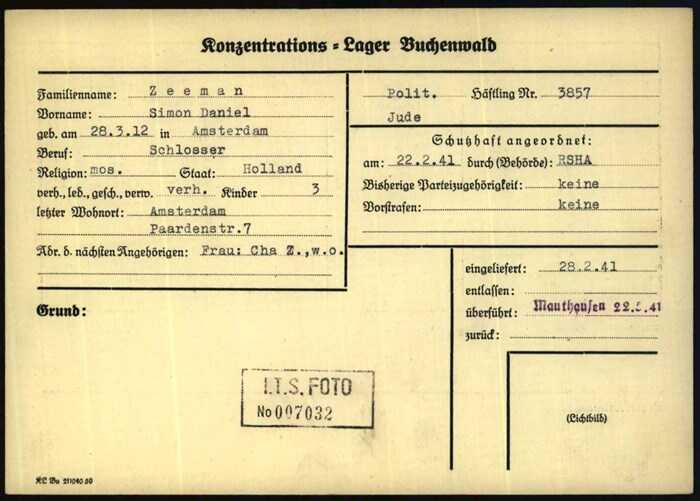 Konzentrations = Lager Buchenwald
Familienname: Zeeman
Vorname: Simon Daniel
geb. am 28.3.12 in Amsterdam
Beruf: Schlosser
Religion: mos. Staat: Holland
verh., led., gesch., verw. verh. Kinder 3
letzter Wohnort: Amsterdam
Paardenstr.7
Adr. d. nächsten Angehörigen: Frau: Cha Z.,w.o.
Grund:
Polit. Häftling Nr. 3857
Jude
Schutzhaft angeordnet:
am: 22.2.41 durch (Behörde): RSHA
Bisherige Parteizugehörigkeit: keine
Vorstrafen: keine
eingeliefert: 28.2.41
entlassen:
überführt: Mauthausen 22.5.41
zurück:
(Lichtbild)
I.T.S. FOTO
No 007032
KL Bu 211040 50